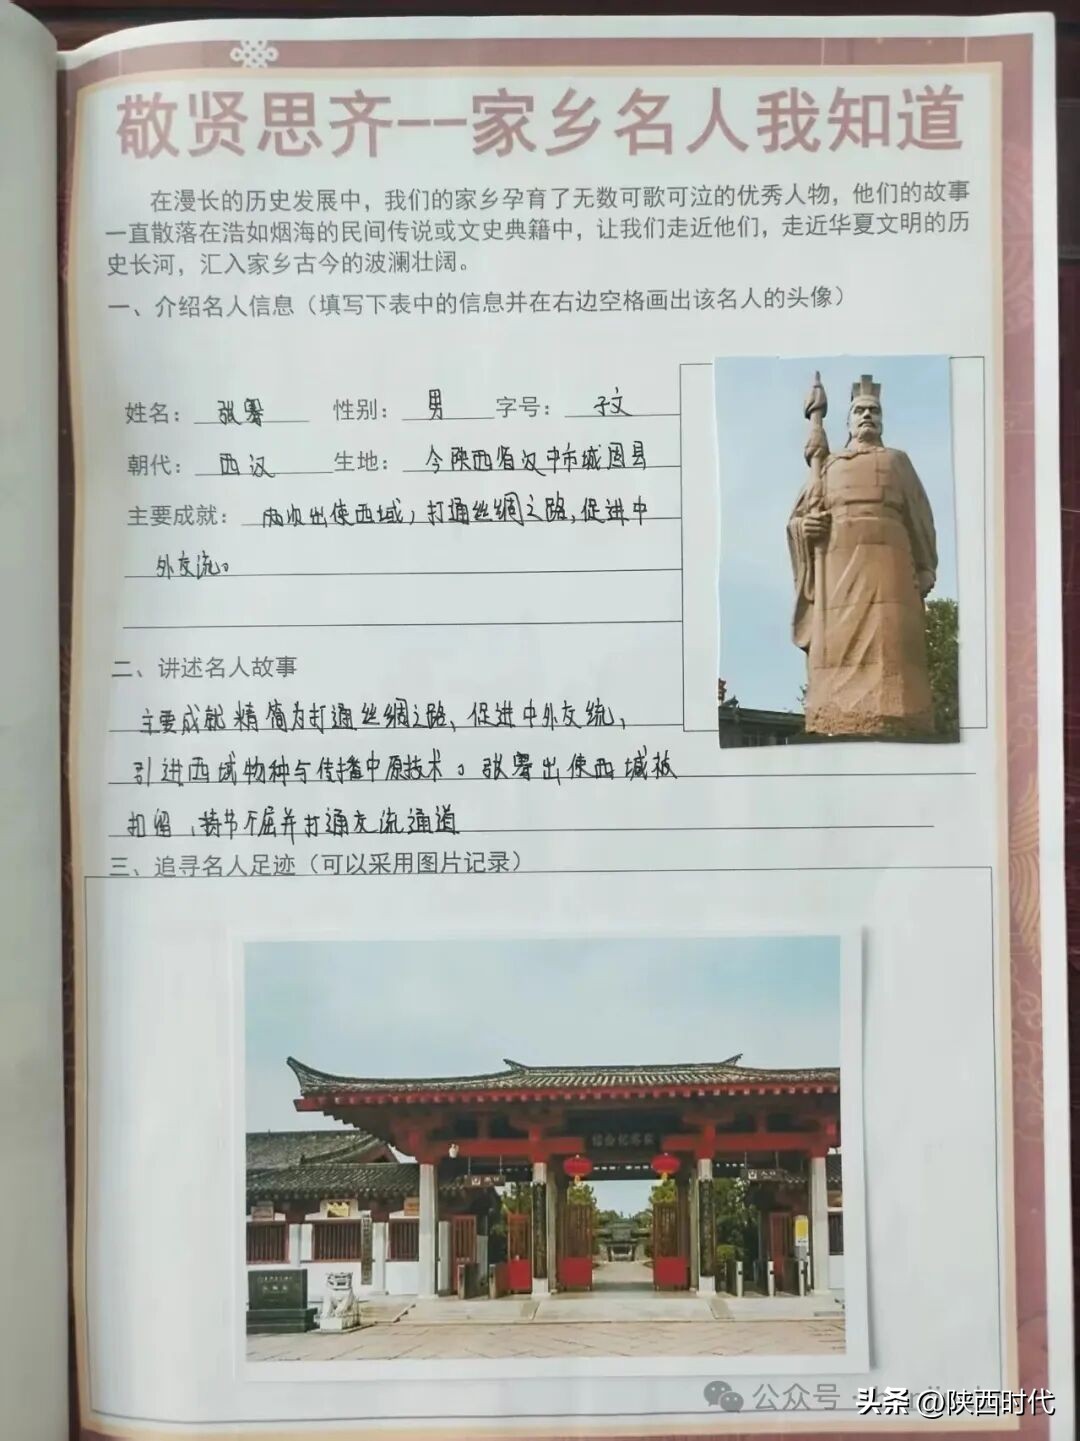 敬贤思齐--家乡名人我知道
在漫长的历史发展中，我们的家乡孕育了无数可歌可泣的优秀人物，他们的故事
一直散落在浩如烟海的民间传说或文史典籍中，让我们走近他们，走近华夏文明的历
史长河，汇入家乡古今的波澜壮阔。
一、介绍名人信息（填写下表中的信息并在右边空格画出该名人的头像）
姓名：张骞 性别：男 字号：子文
朝代：西汉 生地：今陕西省汉中市城固县
主要成就：两次出使西域，打通丝绸之路，促进中
外交流。
二、讲述名人故事
主要成就精简为打通丝绸之路、促进中外交流，
引进西域物种与传播中原技术。张骞出使西域被
扣留，持节不屈并打通交流通道
三、追寻名人足迹（可以采用图片记录）
张骞纪念馆
公众号
头条 @陕西时代